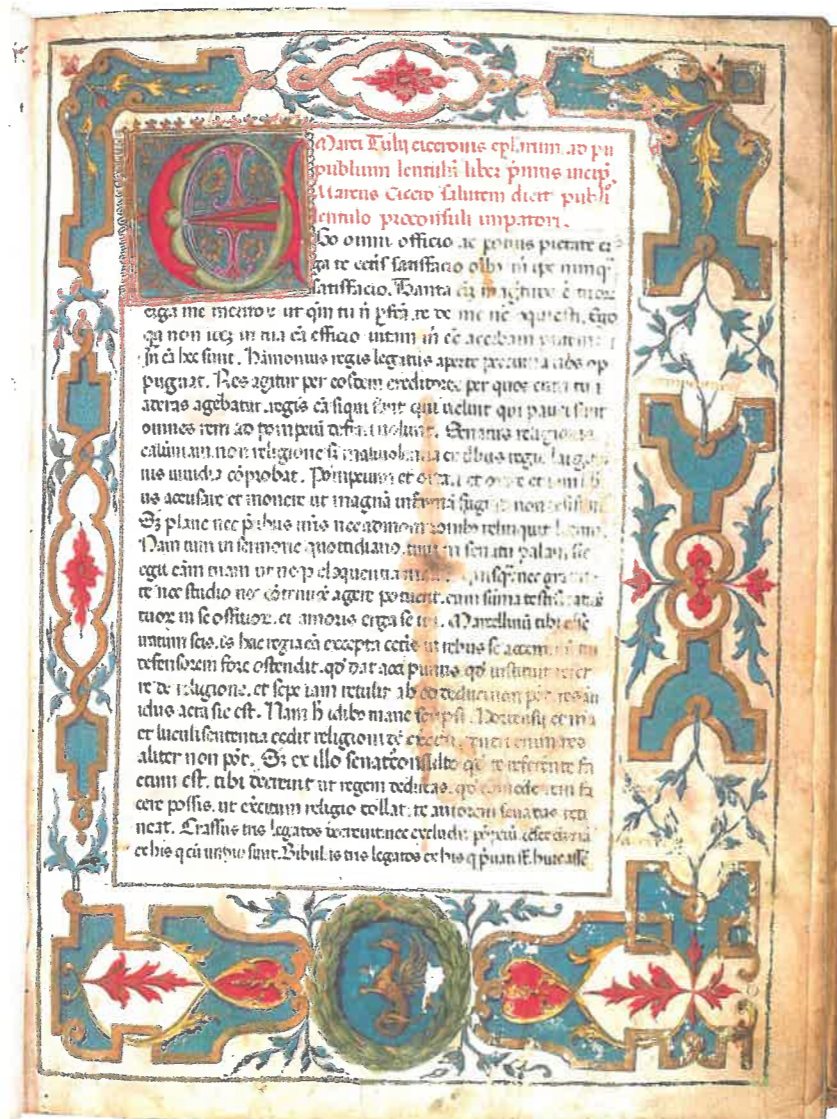 Marci Tulij ciceronis eplarum ad pu
publium lentulū liber p̄mus incip̄
Marcus Cicero salutem dicit publi
lentulo proconsuli impatori.
EGo omni officio ac potius pietate er
ga te ceteris satisfacio oībꝰ m ipe nunq̄
satisfacio. Tanta eī magnitudo ē tuorꝝ
erga me meritorꝝ ut qm tu n̄ pfcā re de me
qa non idez in tua cā efficio uitam m ēē acerbam putem
In cā hec sunt. Hāmonius regis legatus aperte pecunia nos op
pugnat. Res agitur per eosdem creditores per quos cum tu
aderas agebatur. regis cā siqui sunt qui uelint qui pauci sunt
omnes rem ad pompeiū deferri uolunt. Senatus religionis
calūniam non religione s̄ maliuolentia et illius regie largitio
nis inuidia cōprobat. Pompeium et
us accusare et monere ut magnā infamiā fugiat non
Sꝫ plane nec p̄cibus nr̄is nec admonitionibꝰ relinquit locum.
Nam cum in sermone quottidiano. tum in senatu palam sic
egit cām tuam ut neqꝫ eloquentia
te nec studio nec cōtentiōe agere potuerit. cum sūma testificatōe
tuorꝝ in se offitiorꝝ. et amoris erga se tui. Marcellinū tibi esse
iratum scis. is hac regia cā excepta ceteris in rebus se acerrimū tui
defensorem fore ostendit. qd dat accipimus qd instituit referr
re de religione. et sepe iam retulit ab eo deduci non pōt. res an
idus acta sic est. Nam h̄ idibꝰ mane scripsi. Hortensij et mea
et luculli sententia cedit religioni de exercitu. teneri enim res
aliter non pōt. Sꝫ ex illo senatꝰconsulto qd te referente fa
ctum est. tibi decernit ut regem deducas. qd comode
cere possis. ut exercitum religio tollat. te auctorem senatus reti
neat. Crassus tris legatos decernit. nec excludit pōpeiū censet enim
ex his q cū imperio sunt. Bibulus tris legatos ex his q p̄uati st̄. huic asse